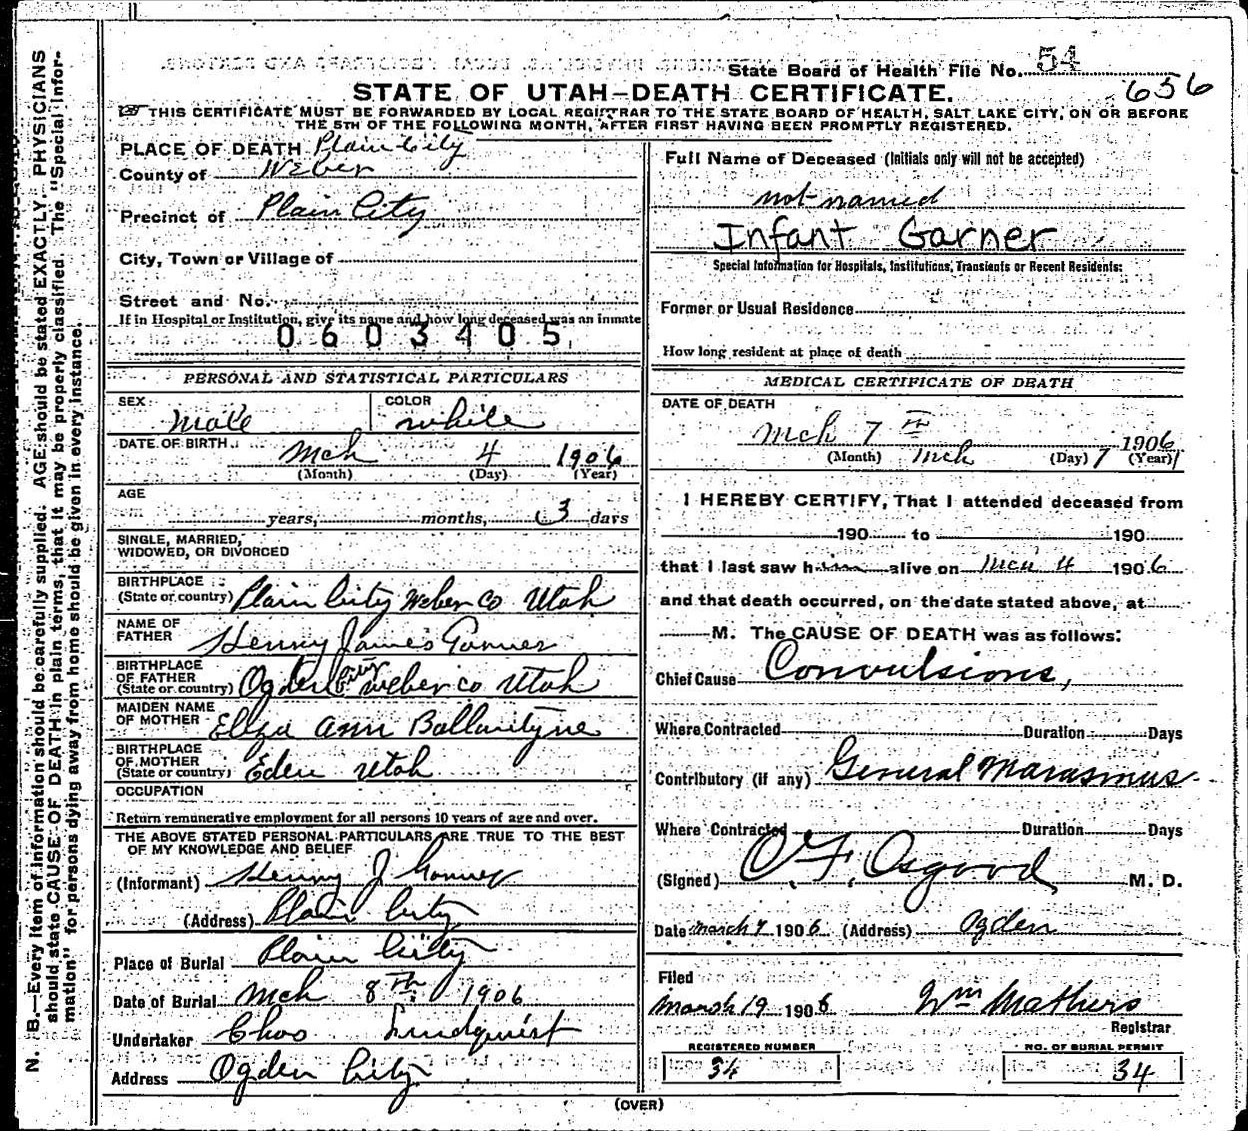 State Board of Health File No. 54
656
STATE OF UTAH—DEATH CERTIFICATE.
THIS CERTIFICATE MUST BE FORWARDED BY LOCAL REGISTRAR TO THE STATE BOARD OF HEALTH, SALT LAKE CITY, ON OR BEFORE
THE 5TH OF THE FOLLOWING MONTH, AFTER FIRST HAVING BEEN PROMPTLY REGISTERED.
PLACE OF DEATH Plain City
County of Weber
Precinct of Plain City
City, Town or Village of
Street and No.
If in Hospital or Institution, give its name and how long deceased was an inmate
0603405
PERSONAL AND STATISTICAL PARTICULARS
SEX Male COLOR White
DATE OF BIRTH Mch 4 1906
(Month) (Day) (Year)
AGE
years, months, 3 days
SINGLE, MARRIED,
WIDOWED, OR DIVORCED
BIRTHPLACE
(State or country) Plain City Weber Co Utah
NAME OF
FATHER Henry James Garner
BIRTHPLACE
OF FATHER
(State or country) Ogden City Weber co Utah
MAIDEN NAME
OF MOTHER Eliza Ann Ballantyne
BIRTHPLACE
OF MOTHER
(State or country) Eden Utah
OCCUPATION
Return remunerative employment for all persons 10 years of age and over.
THE ABOVE STATED PERSONAL PARTICULARS ARE TRUE TO THE BEST
OF MY KNOWLEDGE AND BELIEF
(Informant) Henry J Garner
(Address) Plain City
Place of Burial Plain City
Date of Burial Mch 8th 1906
Undertaker Chas Lindquist
Address Ogden City
Full Name of Deceased (Initials only will not be accepted)
not named
Infant Garner
Special Information for Hospitals, Institutions, Transients or Recent Residents:
Former or Usual Residence
How long resident at place of death
MEDICAL CERTIFICATE OF DEATH
DATE OF DEATH
Mch 7th 1906
(Month) Mch (Day) 7 (Year)
I HEREBY CERTIFY, That I attended deceased from
190 to 190
that I last saw him alive on Mch 4 1906
and that death occurred, on the date stated above, at
M. The CAUSE OF DEATH was as follows:
Chief Cause Convulsions,
Where Contracted Duration Days
Contributory (if any) General Marasmus
Where Contracted Duration Days
(Signed) O. F. Osgood M. D.
Date March 7 1906 (Address) Ogden
Filed
March 19 1906 Wm Mathers
Registrar
REGISTERED NUMBER NO. OF BURIAL PERMIT
34 34
(OVER)
N. B.—Every item of information should be carefully supplied. AGE should be stated EXACTLY. PHYSICIANS
should state CAUSE OF DEATH in plain terms, that it may be properly classified. The "Special Infor-
mation" for persons dying away from home should be given in every instance.